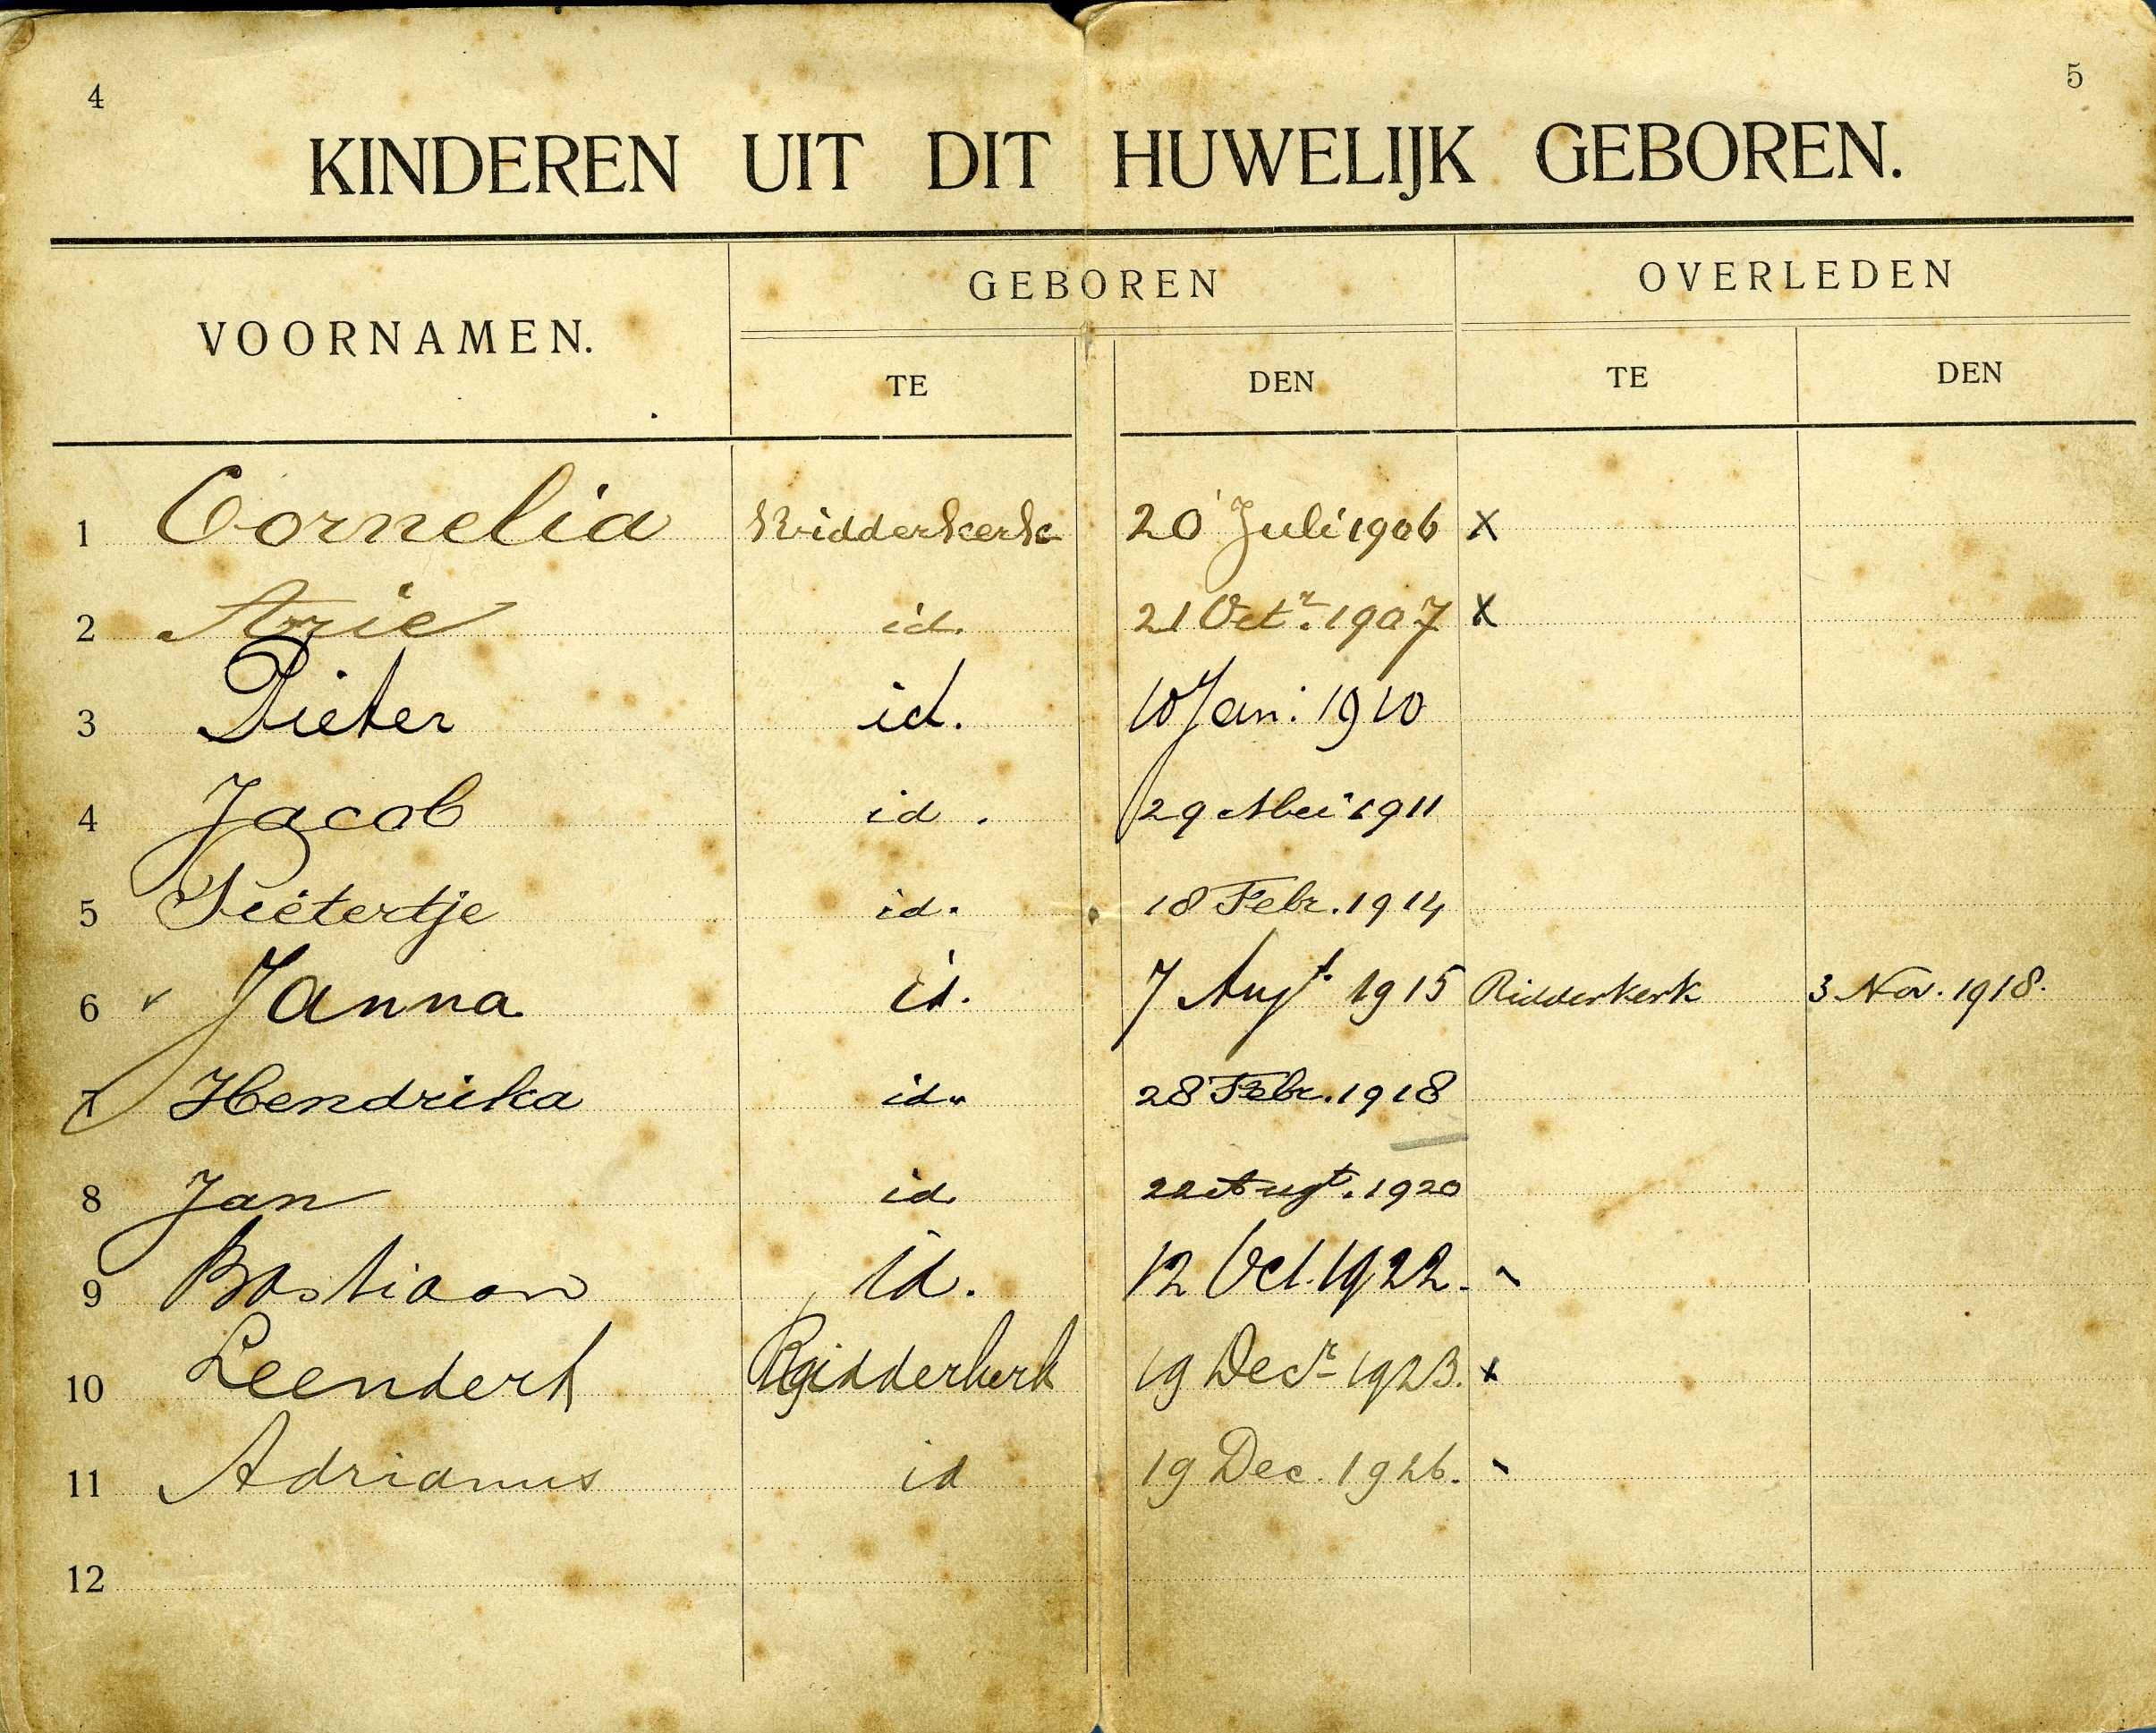 4 5
KINDEREN UIT DIT HUWELIJK GEBOREN.
VOORNAMEN. GEBOREN OVERLEDEN
TE DEN TE DEN
1 Cornelia Ridderkerk 20 Juli 1906 X
2 Arie id. 21 Octr. 1907 X
3 Pieter id. 10 Jan: 1910
4 Jacob id. 29 Mei 1911
5 Pietertje id. 18 Febr. 1914
6 Janna id. 7 Augt. 1915 Ridderkerk 3 Nov. 1918.
7 Hendrika id. 28 Febr. 1918
8 Jan id 22 Augt. 1920
9 Bastiaan id. 12 Oct. 1922.
10 Leendert Ridderkerk 19 Decr 1923. x
11 Adrianus id 19 Dec. 1926.
12